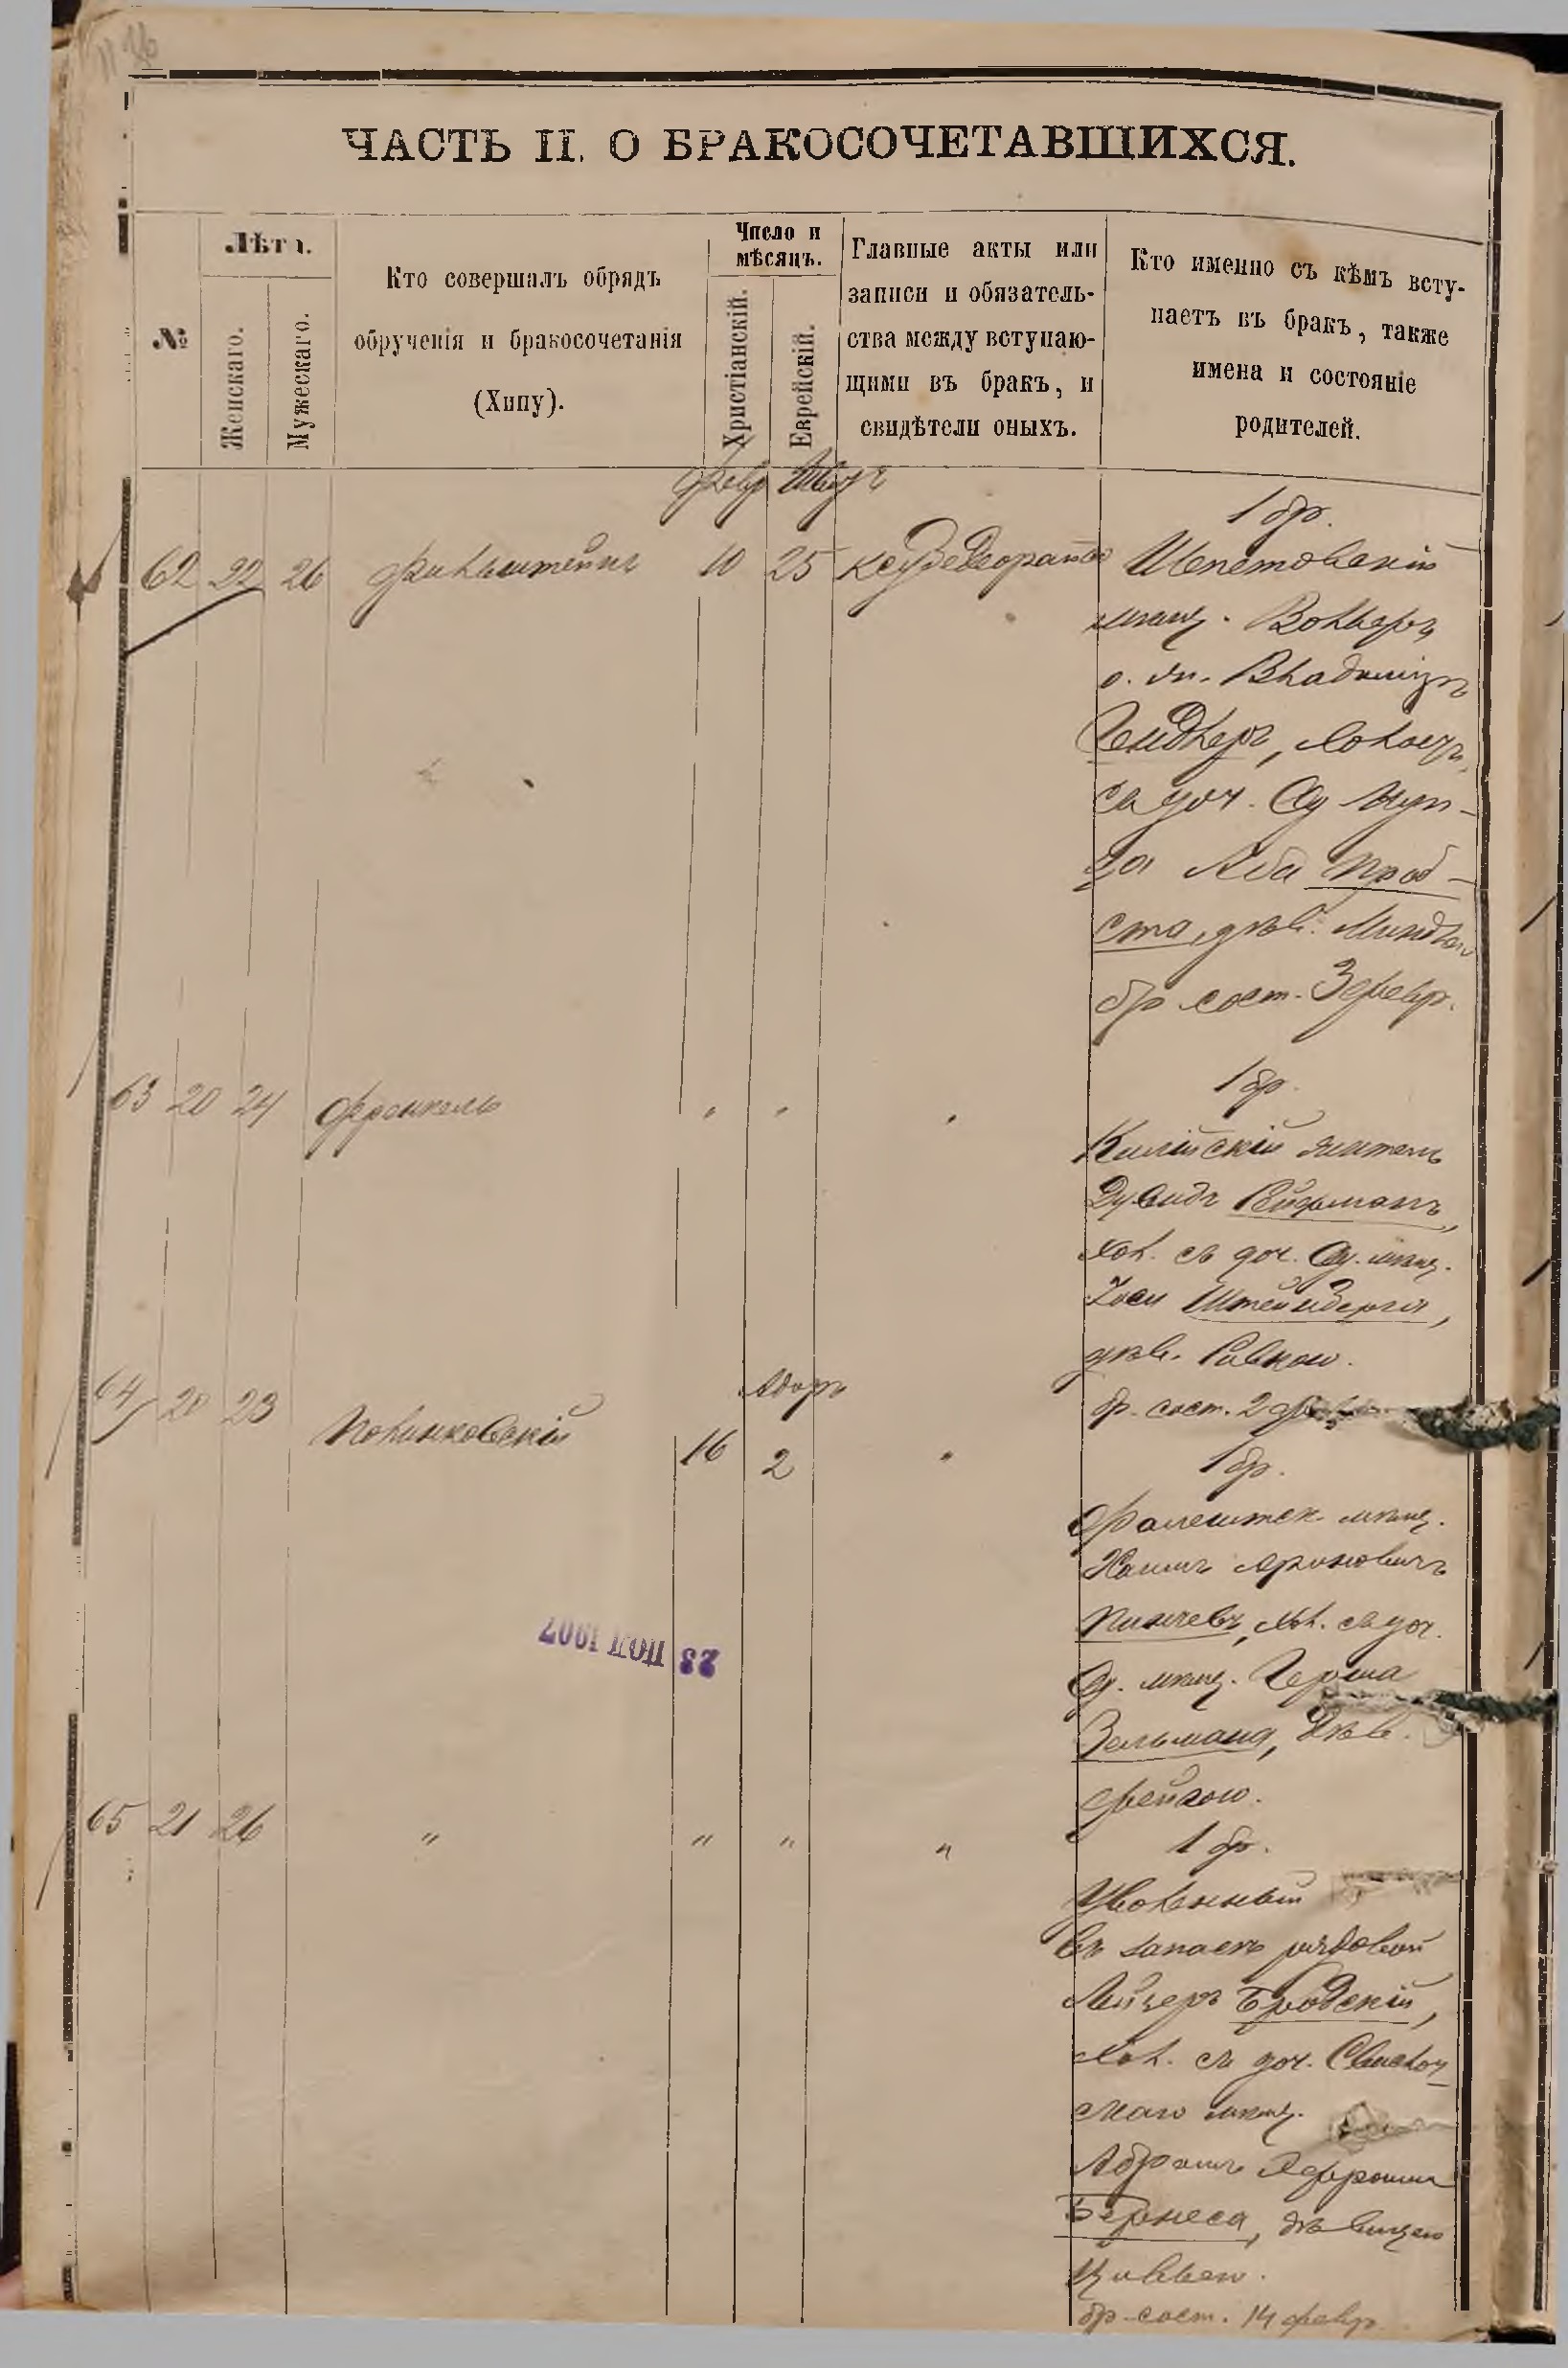 ЧАСТЬ II. О БРАКОСОЧЕТАВШИХСЯ.
№
Лѣта.
Женскаго.
Мужескаго.
Кто совершалъ обрядъ
обрученія и бракосочетанія
(Хипу).
Число и
мѣсяцъ.
Христіанскій.
Еврейскій.
Главные акты или
записи и обязатель-
ства между вступаю-
щими въ бракъ, и
свидѣтели оныхъ.
Кто именно съ кѣмъ всту-
паетъ въ бракъ, также
имена и состояніе
родителей.
Февр Шватъ
1 бр.
62 22 26 Финкельштейнъ 10 25
Шепетовскій
мѣщ. Вольеръ
Владиміръ
Гендлеръ, холост.
съ доч. Од. куп-
ца Аба Проб-
ста, дѣв. Миндлею
бр. сост. 3 февр.
1 бр.
63 20 24 Френкель " " "
Килійскій житель
Дувидъ Вейсманъ,
хол. съ доч. Од. мѣщ.
Іоси Штейнберга,
дѣв. Ривкою.
бр. сост. 2
64 20 23 Полинковскій 16 Адаръ 2 "
1 бр.
Фалештск. мѣщ.
Хаимъ Ароновичъ
Пинчевъ, хол. съ доч.
Од. мѣщ. Герша
Зельмана, дѣв.
Фейгою.
65 21 26 " " " "
1 бр.
Уволенный
въ запасъ рядовой
Лейзеръ Бродскій,
хол. съ доч. Свислоч-
скаго мѣщ.
Абрамъ Эфроимъ
Бернеса, дѣвицею
Цивьею.
бр. сост. 14 февр.
23 ІЮЛ 1907